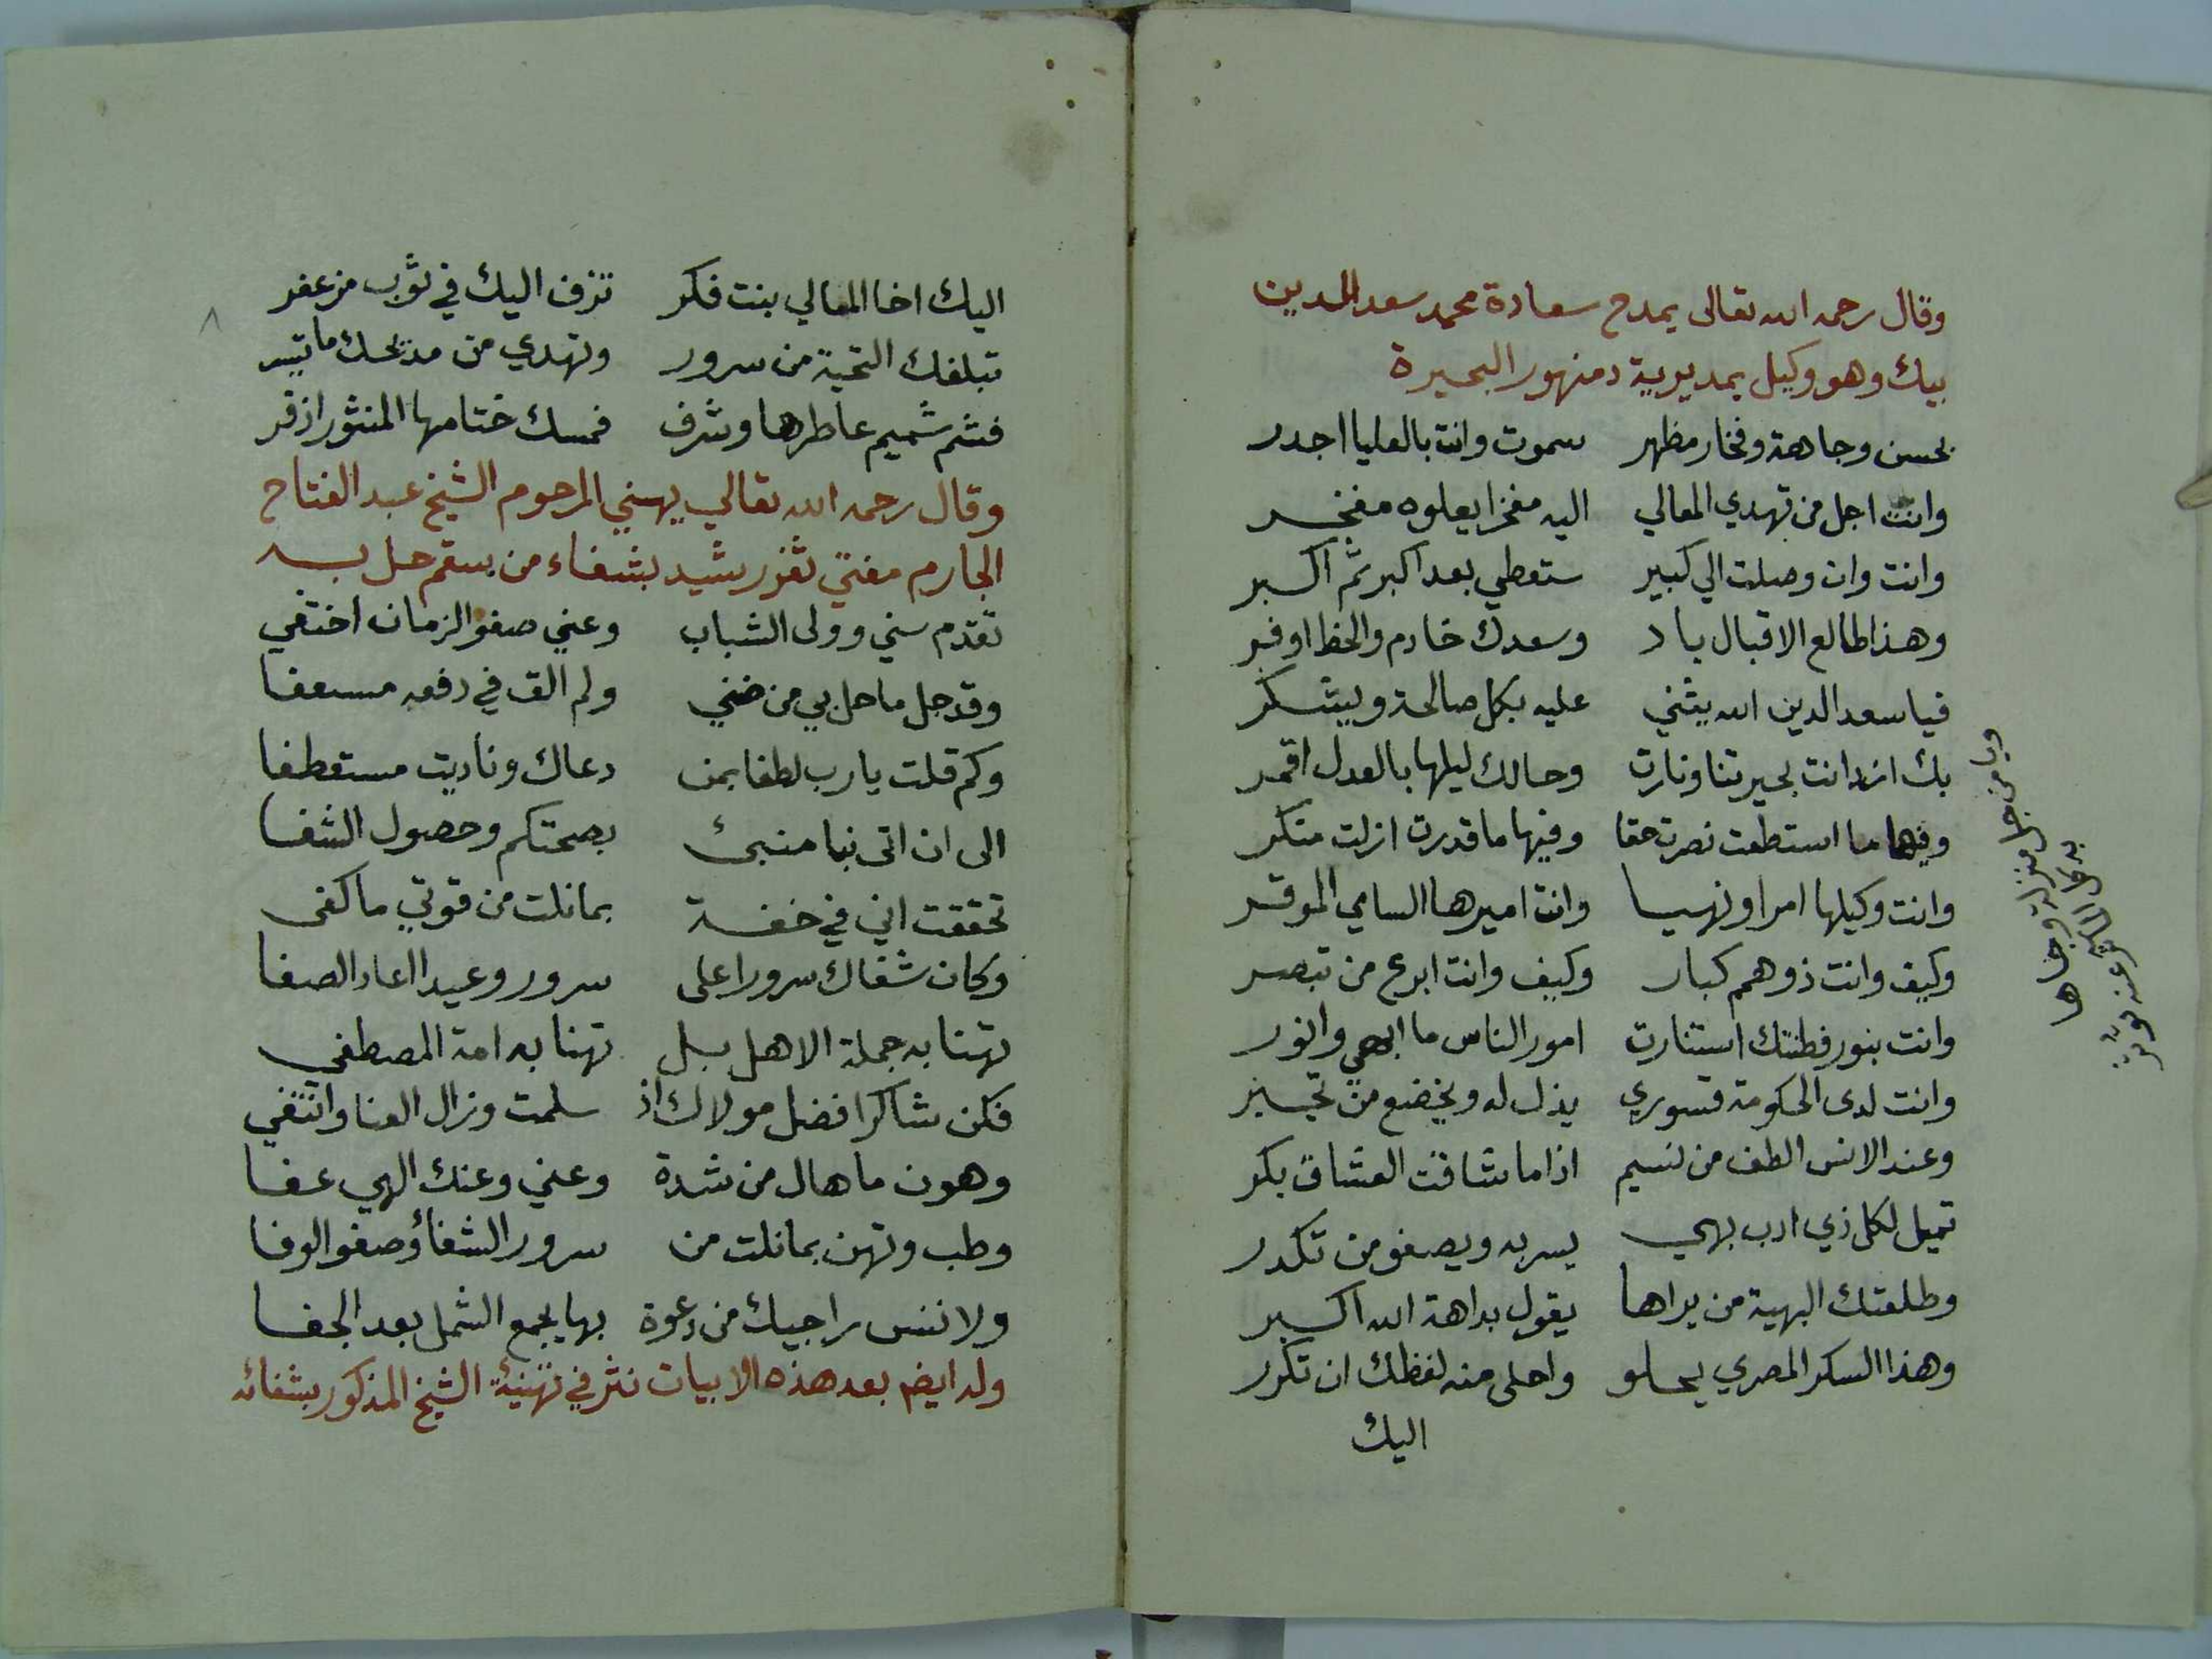 وقال رحمه الله تعالى يمدح سعادة محمد سعد الدين
بيك وهو وكيل بمديرية دمنهور البحيرة
بحسن وجاهة وفخار مظهر سموت وانت بالعليا اجدر
وانت اجل من تهدي المعالي اليه مفخرا يعلوه مفخر
وانت وان وصلت الي كبير ستعطي بعد اكبر ثم اكبر
وهذا طالع الاقبال باد وسعدك خادم والحظ اوفر
فيا سعد الدين الله يثني عليه بكل صالحة ويشكر
بك ازدانت بحيرتنا ونارت وحالك ليلها بالعدل اقمر
وفيها ما استطعت نصرت حقا وفيها ما قدرت ازلت منكر
وانت وكيلها امرا ونهيا وانت اميرها السامي الموقر
وكيف وانت ذو همم كبار وكيف وانت ابرع من تبصر
وانت بنور فطنتك استنارت امور الناس ما ابهي وانور
وانت لدى الحكومة قسوري يذل له ويخضع من تجبر
وعند الانس الطف من نسيم اذا ما شاقت العشاق بكر
تميل لكل ذي ادب بهي يسر به ويصفو من تكدر
وطلعتك البهية من يراها يقول بداهة الله اكبر
وهذا السكر المصري يحلو واحلى منه لفظك ان تكرر
اليك
ويا من جل منزلة وجاها
اليك اخا المعالي بنت فكر تزف اليك في ثوب مزعفر
تبلغك التحية من سرور وتهدي من مديحك ما تيسر
فشم شميم عاطرها وشرف فمسك ختامها المنثور اذفر
وقال رحمه الله تعالي يهني المرحوم الشيخ عبد الفتاح
الجارم مفتي ثغر رشيد بشفاء من سقم حل به
تقدم سني وولى الشباب وعني صفو الزمان اختفي
وقد جل ما حل بي من ضني ولم الق في دفعه مسعفا
وكم قلت يا رب لطفا بمن دعاك وناديت مستعطفا
الى ان اتى نبا منبئ بصحتكم وحصول الشفا
تحققت اني في خفة بما نلت من قوتي ما كفى
وكان شفاك سرورا على سرور وعيدا اعاد الصفا
تهنا به جملة الاهل بل تهنا به امة المصطفي
فكن شاكرا فضل مولاك اذ سلمت وزال العنا وانتفي
وهون ما هال من شدة وعني وعنك الهي عفا
وطب وتهن بما نلت من سرور الشفاؤ صفو الوفا
ولا تنس راجيك من دعوة بها يجمع الشمل بعد الجفا
وله ايضم بعد هذه الابيات نثر في تهنيئة الشيخ المذكور بشفائه